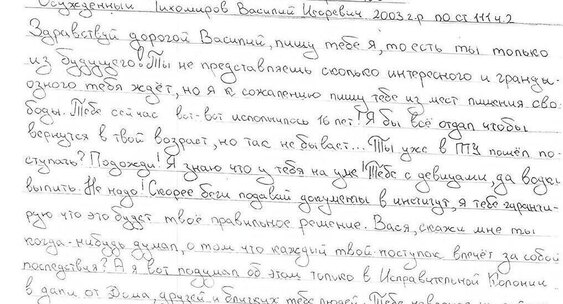 Осужденный Тихомиров Василий Игоревич 2003 г.р по ст 111 ч.2
Здравствуй дорогой Василий, пишу тебе я, то есть ты только
из будущего! Ты не представляешь сколько интересного и гранди-
озного тебя ждёт, но я к сожалению пишу тебе из мест лишения сво-
боды. Тебе сейчас вот-вот исполнилось 16 лет! Я бы всё отдал чтобы
вернутся в твой возраст, но так не бывает... Ты уже в ПТУ пошёл по-
ступать? Подожди! Я знаю что у тебя на уме! Тебе с девицами, да водку
выпить. Не надо! Скорее беги подавай документы в институт, я тебе гаранти-
рую что это будет твоё правильное решение. Вася, скажи мне ты
когда-нибудь думал, о том что каждый твой поступок влечёт за собой
последствия? А я вот подумал об этом только в Исправительной Колонии
в дали от Дома, друзей и близких тебе людей. Тебе